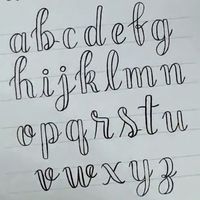 abcdefg
hijklmn
opqrstu
vwxyz